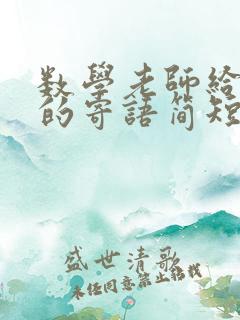 数學老師給
的寄語简短
盛世清歌
未经同意禁止转载